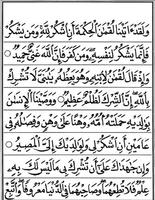 وَلَقَدْ ءَاتَيْنَا لُقْمَٰنَ ٱلْحِكْمَةَ أَنِ ٱشْكُرْ لِلَّهِ وَمَن يَشْكُرْ
فَإِنَّمَا يَشْكُرُ لِنَفْسِهِۦ وَمَن كَفَرَ فَإِنَّ ٱللَّهَ غَنِىٌّ حَمِيدٌ
وَإِذْ قَالَ لُقْمَٰنُ لِٱبْنِهِۦ وَهُوَ يَعِظُهُۥ يَٰبُنَىَّ لَا تُشْرِكْ
بِٱللَّهِ إِنَّ ٱلشِّرْكَ لَظُلْمٌ عَظِيمٌ وَوَصَّيْنَا ٱلْإِنسَٰنَ
بِوَٰلِدَيْهِ حَمَلَتْهُ أُمُّهُۥ وَهْنًا عَلَىٰ وَهْنٍ وَفِصَٰلُهُۥ فِى
عَامَيْنِ أَنِ ٱشْكُرْ لِى وَلِوَٰلِدَيْكَ إِلَىَّ ٱلْمَصِيرُ
وَإِن جَٰهَدَاكَ عَلَىٰٓ أَن تُشْرِكَ بِى مَا لَيْسَ لَكَ بِهِۦ
عِلْمٌ فَلَا تُطِعْهُمَا وَصَاحِبْهُمَا فِى ٱلدُّنْيَا مَعْرُوفًا وَٱتَّبِعْ